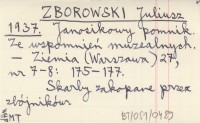 ZBOROWSKI Juliusz
1937. Janosikowy pomnik.
Ze wspomnień muzealnych.
– Ziemia (Warszawa) 27,
nr 7-8: 175-177.
Skarby zakopane przez
zbójników
MT